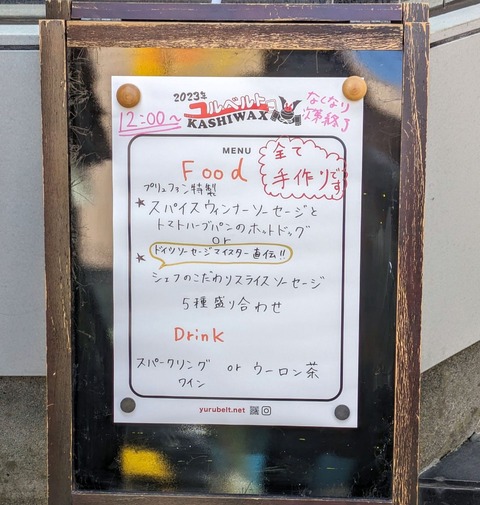 2023年
コルベルト
KASHIWAX
12:00〜
なくなり
次第終了
MENU
Food
全て
手作りです
プリュフェン特製
★スパイスウィンナーソーセージと
トマトハーブパンのホットドッグ
or
★ドイツソーセージマイスター直伝!!
シェフのこだわりスライスソーセージ
5種盛り合わせ
Drink
スパークリング or ウーロン茶
ワイン
yurubelt.net